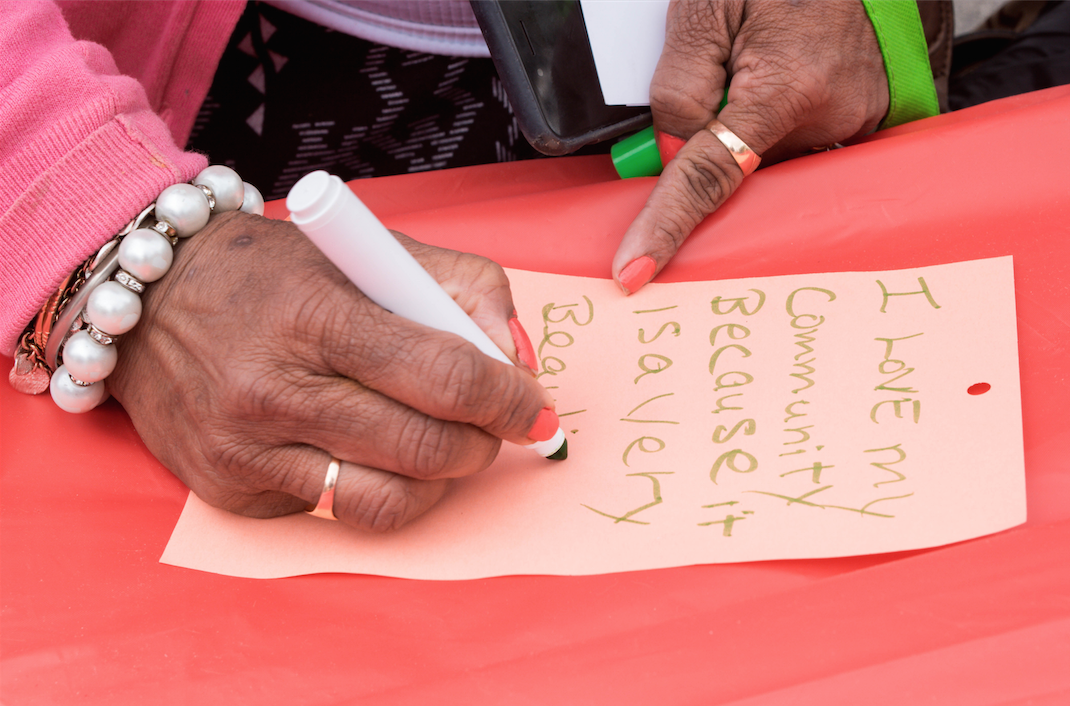 I Love my
Community
Because it
Is a Very